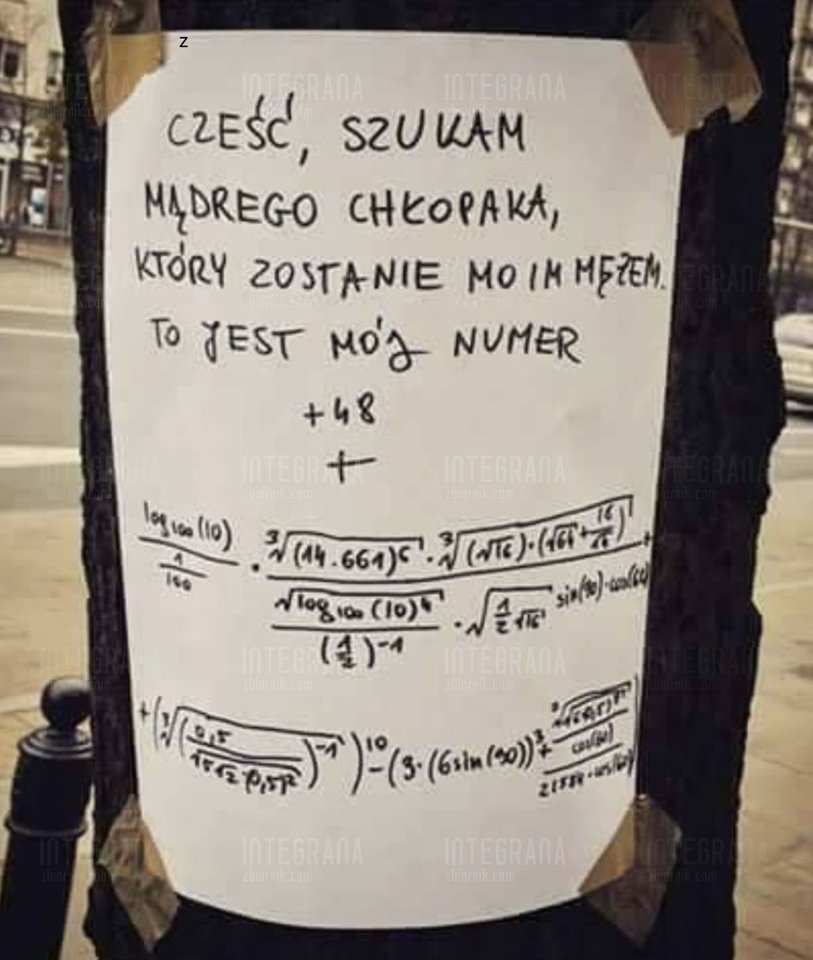 z
CZEŚĆ, SZUKAM
MĄDREGO CHŁOPAKA,
KTÓRY ZOSTANIE MOIM MĘŻEM.
TO JEST MÓJ NUMER
+48
+
log₁₀₀(10) / (1/100) · ∛(14.661)⁶ · ∛((√16)·(√64+16/16)) +
√log₁₀₀(10)⁴ / (1/2)⁻¹ · √(1/2 √16) sin(90)·cos(60)
+(∛(0,5 / √512·(0,5)²)⁻¹)¹⁰ − (3·(6sin(90))³ +
cos(60)
INTEGRANA
zbiornik.com